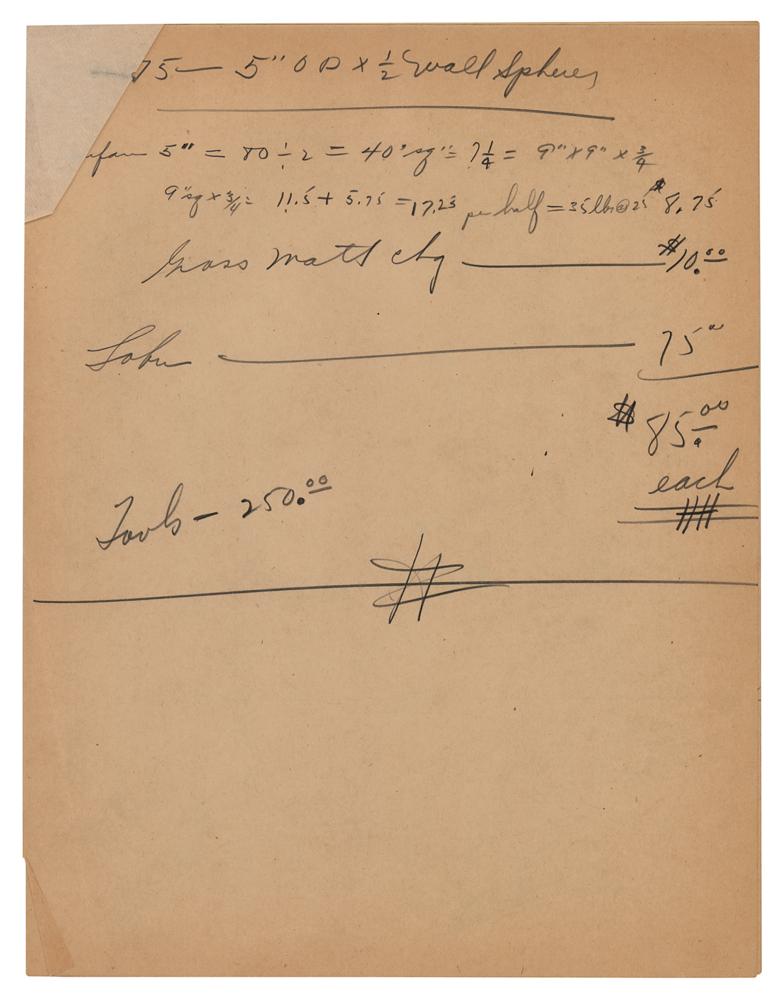 75 — 5" OD x 1/2 Wall Spheres
5" = 80 ÷ 2 = 40" sq" = 7 1/4 = 9" x 9" x 3/4
9" sq x 3/4 = 11.5 + 5.75 = 17.25 per half = 35 lbs @ 25 $8.75
Gross Matl chg — $10.00
Labor — 75 00
$85.00
each
Tools — 250.00